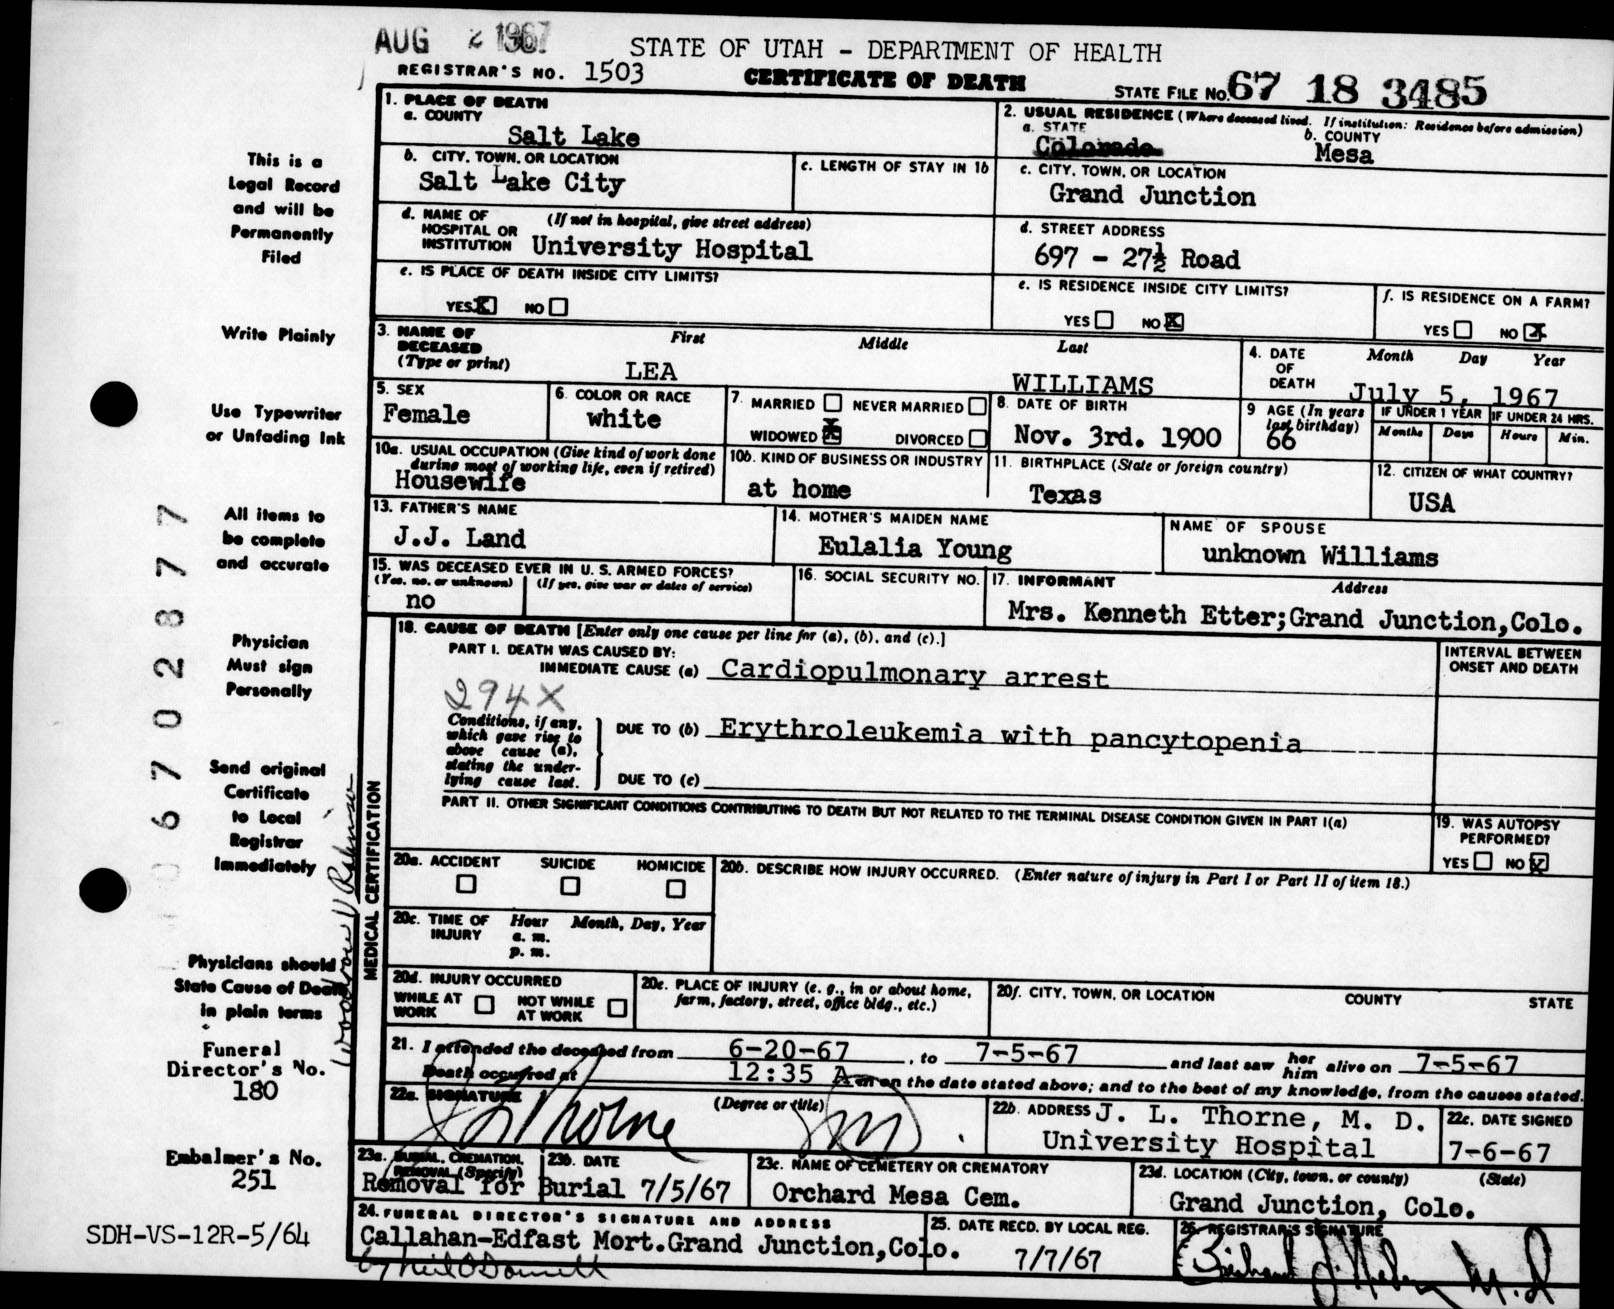 AUG 2 1967
STATE OF UTAH - DEPARTMENT OF HEALTH
REGISTRAR'S NO. 1503
CERTIFICATE OF DEATH
STATE FILE NO. 67 18 3485
1. PLACE OF DEATH
a. COUNTY
Salt Lake
2. USUAL RESIDENCE (Where deceased lived. If institution: Residence before admission)
a. STATE
Colorado
b. COUNTY
Mesa
b. CITY, TOWN, OR LOCATION
Salt Lake City
c. LENGTH OF STAY IN 1b
c. CITY, TOWN, OR LOCATION
Grand Junction
d. NAME OF HOSPITAL OR INSTITUTION
(If not in hospital, give street address)
University Hospital
d. STREET ADDRESS
697 - 27½ Road
e. IS PLACE OF DEATH INSIDE CITY LIMITS?
YES X NO
e. IS RESIDENCE INSIDE CITY LIMITS?
YES NO X
f. IS RESIDENCE ON A FARM?
YES NO X
3. NAME OF DECEASED
(Type or print)
First Middle Last
LEA WILLIAMS
4. DATE OF DEATH
Month Day Year
July 5, 1967
5. SEX
Female
6. COLOR OR RACE
white
7. MARRIED NEVER MARRIED
WIDOWED X DIVORCED
8. DATE OF BIRTH
Nov. 3rd. 1900
9 AGE (In years last birthday)
66
IF UNDER 1 YEAR IF UNDER 24 HRS.
Months Days Hours Min.
10a. USUAL OCCUPATION (Give kind of work done during most of working life, even if retired)
Housewife
10b. KIND OF BUSINESS OR INDUSTRY
at home
11. BIRTHPLACE (State or foreign country)
Texas
12. CITIZEN OF WHAT COUNTRY?
USA
13. FATHER'S NAME
J.J. Land
14. MOTHER'S MAIDEN NAME
Eulalia Young
NAME OF SPOUSE
unknown Williams
15. WAS DECEASED EVER IN U. S. ARMED FORCES?
(Yes, no, or unknown) (If yes, give war or dates of service)
no
16. SOCIAL SECURITY NO.
17. INFORMANT Address
Mrs. Kenneth Etter;Grand Junction,Colo.
MEDICAL CERTIFICATION
18. CAUSE OF DEATH [Enter only one cause per line for (a), (b), and (c).]
PART I. DEATH WAS CAUSED BY:
IMMEDIATE CAUSE (a) Cardiopulmonary arrest
INTERVAL BETWEEN ONSET AND DEATH
294X
Conditions, if any, which gave rise to above cause (a), stating the underlying cause last.
DUE TO (b) Erythroleukemia with pancytopenia
DUE TO (c)
PART II. OTHER SIGNIFICANT CONDITIONS CONTRIBUTING TO DEATH BUT NOT RELATED TO THE TERMINAL DISEASE CONDITION GIVEN IN PART I(a)
19. WAS AUTOPSY PERFORMED?
YES NO X
20a. ACCIDENT SUICIDE HOMICIDE
20b. DESCRIBE HOW INJURY OCCURRED. (Enter nature of injury in Part I or Part II of item 18.)
20c. TIME OF INJURY
Hour Month, Day, Year
a. m.
p. m.
20d. INJURY OCCURRED
WHILE AT WORK NOT WHILE AT WORK
20e. PLACE OF INJURY (e. g., in or about home, farm, factory, street, office bldg., etc.)
20f. CITY, TOWN, OR LOCATION COUNTY STATE
21. I attended the deceased from 6-20-67, to 7-5-67 and last saw her him alive on 7-5-67
Death occurred at 12:35 A m on the date stated above; and to the best of my knowledge, from the causes stated.
22a. SIGNATURE (Degree or title)
Thorne MD
22b. ADDRESS J. L. Thorne, M. D.
University Hospital
22c. DATE SIGNED
7-6-67
23a. BURIAL, CREMATION, REMOVAL (Specify)
Removal for Burial
23b. DATE
7/5/67
23c. NAME OF CEMETERY OR CREMATORY
Orchard Mesa Cem.
23d. LOCATION (City, town, or county) (State)
Grand Junction, Colo.
24. FUNERAL DIRECTOR'S SIGNATURE AND ADDRESS
Callahan-Edfast Mort.Grand Junction,Colo.
by Neil O'Donnell
25. DATE RECD. BY LOCAL REG.
7/7/67
26. REGISTRAR'S SIGNATURE
M.D
This is a
Legal Record
and will be
Permanently
Filed
Write Plainly
Use Typewriter
or Unfading Ink
All items to
be complete
and accurate
Physician
Must sign
Personally
Send original
Certificate
to Local
Registrar
Immediately
Physicians should
State Cause of Death
in plain terms
Funeral
Director's No.
180
Embalmer's No.
251
SDH-VS-12R-5/64
06702877